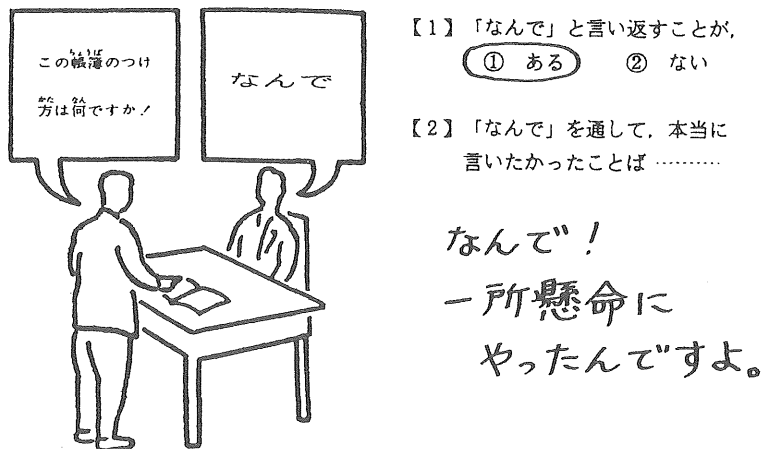 この帳簿のつけ
方は何ですか！
なんで
【1】「なんで」と言い返すことが,
① ある ② ない
【2】「なんで」を通して, 本当に
言いたかったことば ………
なんで！
一所懸命に
やったんですよ。